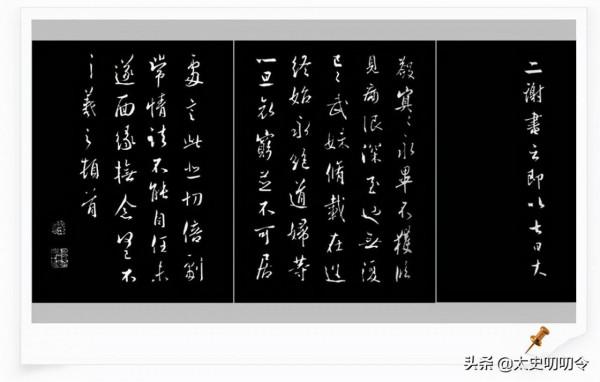 二謝書云即以七日大
殮冥〻永畢不獲臨
見痛恨深至也無復
已〻武妹脩載在
終始永絕道婦等
一旦哀窮並不可居
處言此悲切倍劇
常情諸不能自任未
遂面緣撫念不
羲之頓首
头条 @太史叨叨令